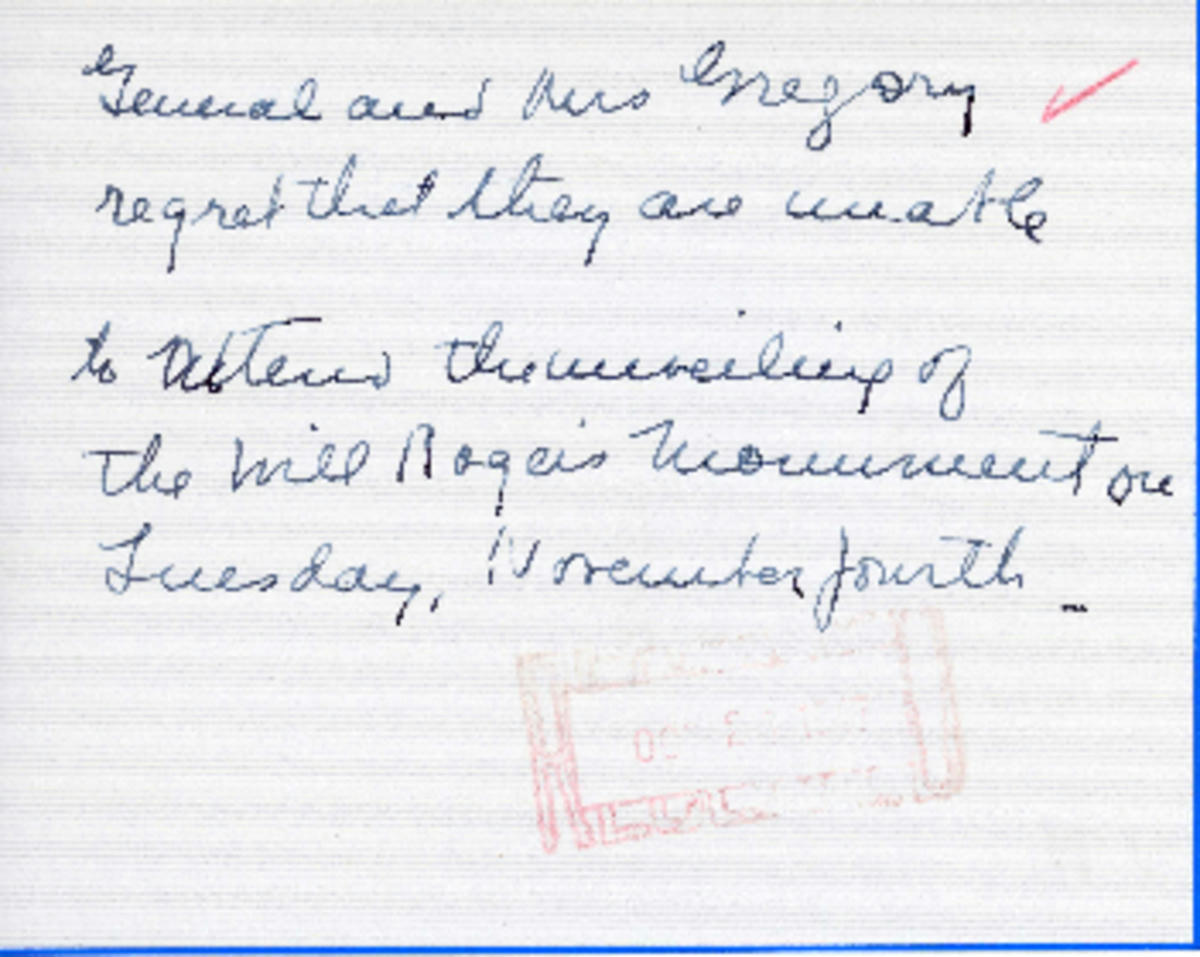 General and Mrs Gregory
regret that they are unable
to Attend the unveiling of
the Will Rogers Monument on
Tuesday, November fourth